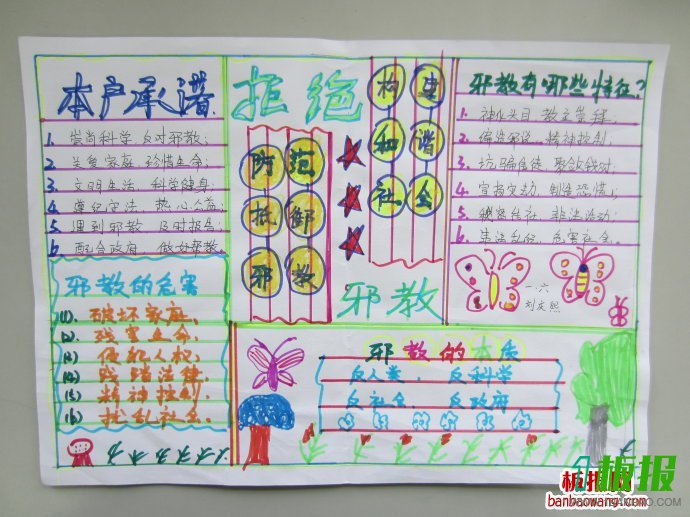 本户承诺
1. 崇尚科学 反对邪教;
2. 关爱家庭 珍惜生命;
3. 文明生活 科学健身;
4. 遵纪守法 热心公益;
5. 遇到邪教 及时报告;
6. 配合政府 做好帮教
邪教的危害
(1)、破坏家庭;
(2)、残害生命;
(3)、侵犯人权;
(4)、践踏法律;
(5)、精神控制;
(6)、扰乱社会。
拒绝
防范
抵御
邪教
构建
和谐
社会
邪教
邪教有哪些特征?
1. 神化头目 教主崇拜;
2. 编造邪说 精神控制;
3. 坑骗信徒 聚敛钱财;
4. 宣扬灾劫 制造恐慌;
5. 秘密结社 非法活动;
6. 非法
危害社会。
一.六
邪教的本质
反人类、 反科学
反社会、 反政府
板报网
banbaowang.com
板报